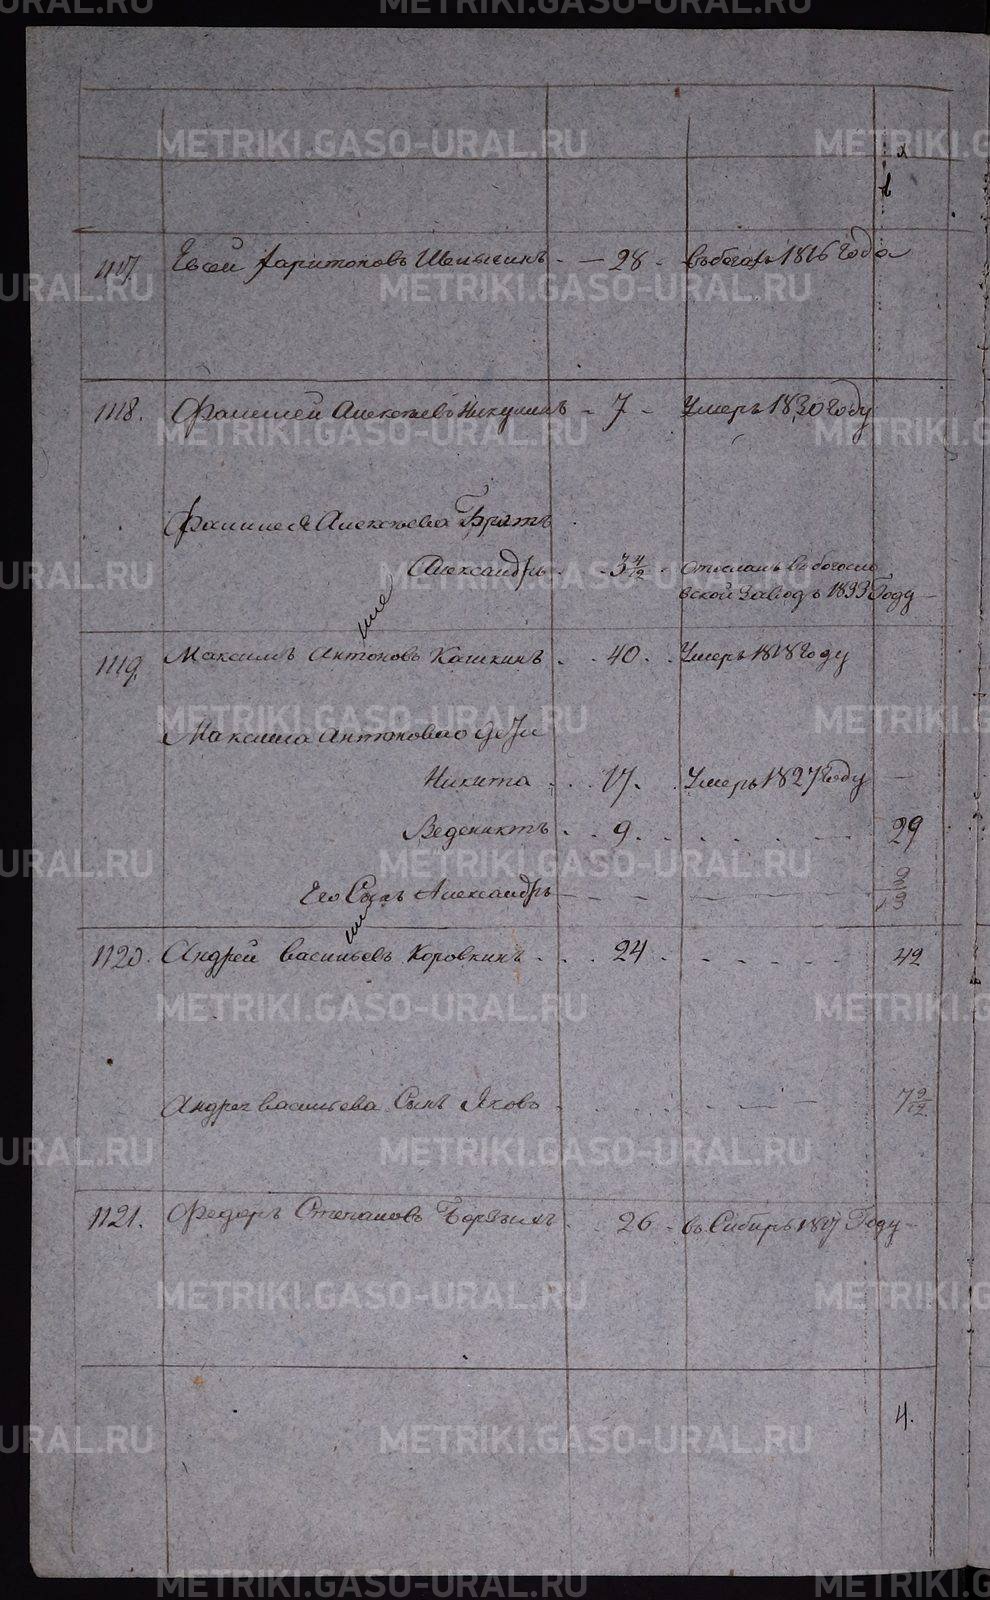 METRIKI.GASO-URAL.RU
1117 Евсей Харитоновъ - 28 - въ бегахъ 1816 Года
1118. Фаншлей Алексеевъ Никулинъ - 7 - Умеръ 1830 Году
Алексеева Братъ
Александръ 3 4/12 отосланъ в богосло
вской Заводъ 1833 Году
1119. Максимъ Антоновъ Кашкинъ 40. Умеръ 1818 Году
Максима Антонова дети
Никита 17. Умеръ 1827 Году
Веденихтъ 9. 29
Его Сынъ Александръ
1120. Андрей Васильевъ Коровкинъ 24 42
Андрея васильева Сынъ Яковъ 7 9/12
1121. Федоръ Степановъ 26 - въ Сибирь 1817 Году
4.